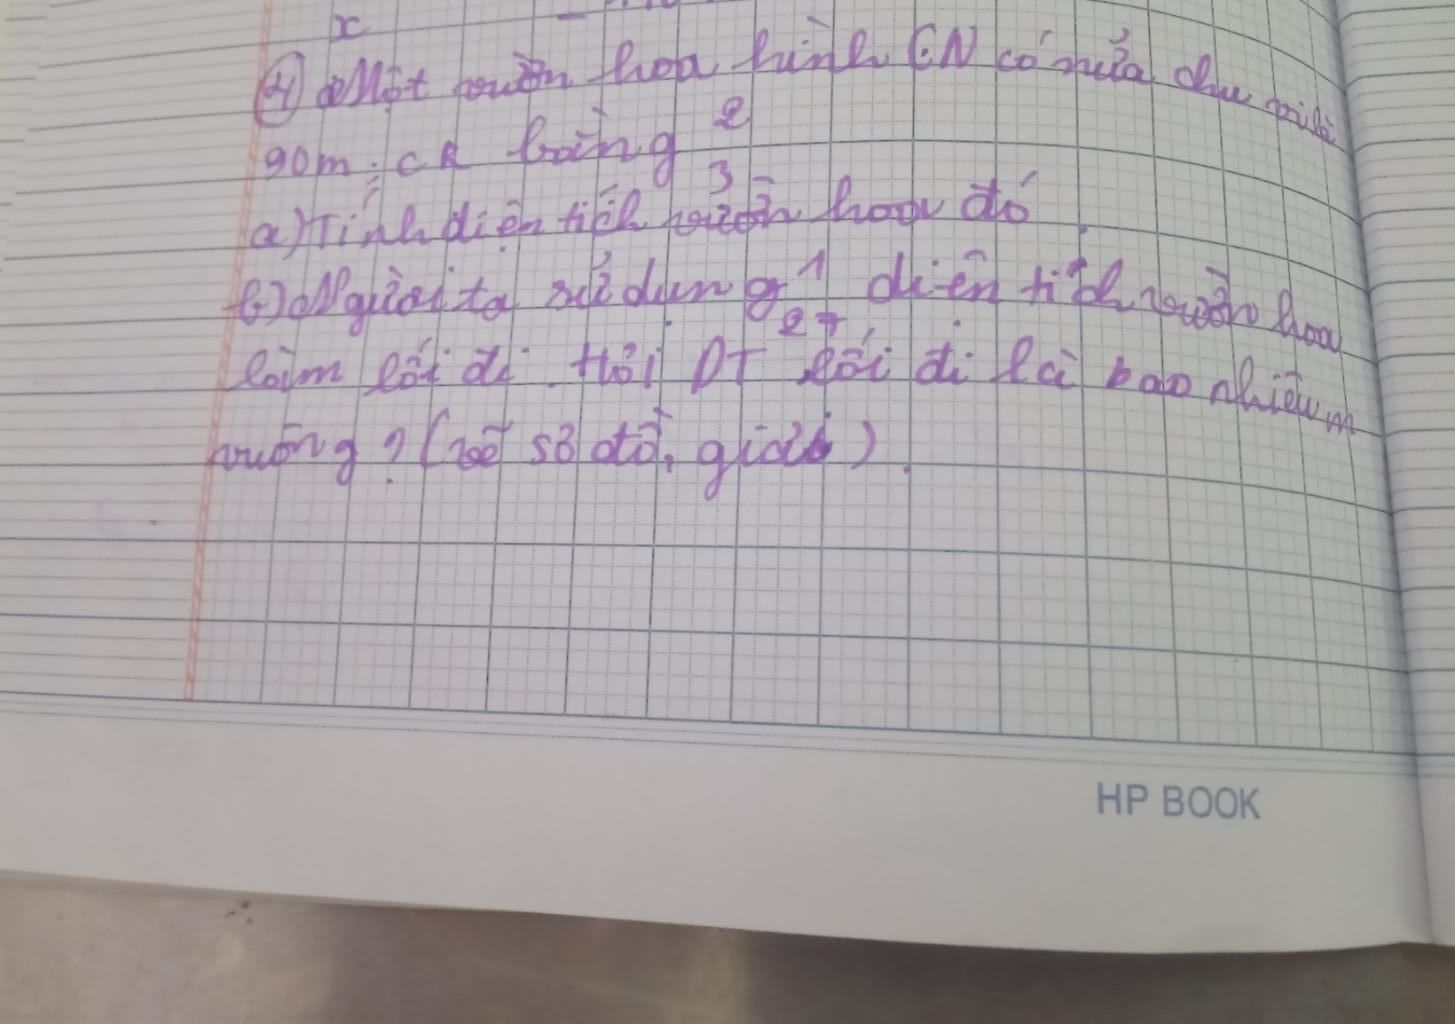 x
4) Một vườn hoa hình CN có nửa chu vi là
90m. CR bằng 2/3
a) Tính diện tích vườn hoa đó
b) Người ta sử dụng 1/27 diện tích vườn hoa
làm lối đi. Hỏi DT lối đi là bao nhiêu m
vuông? (vẽ sơ đồ, giải).
HP BOOK